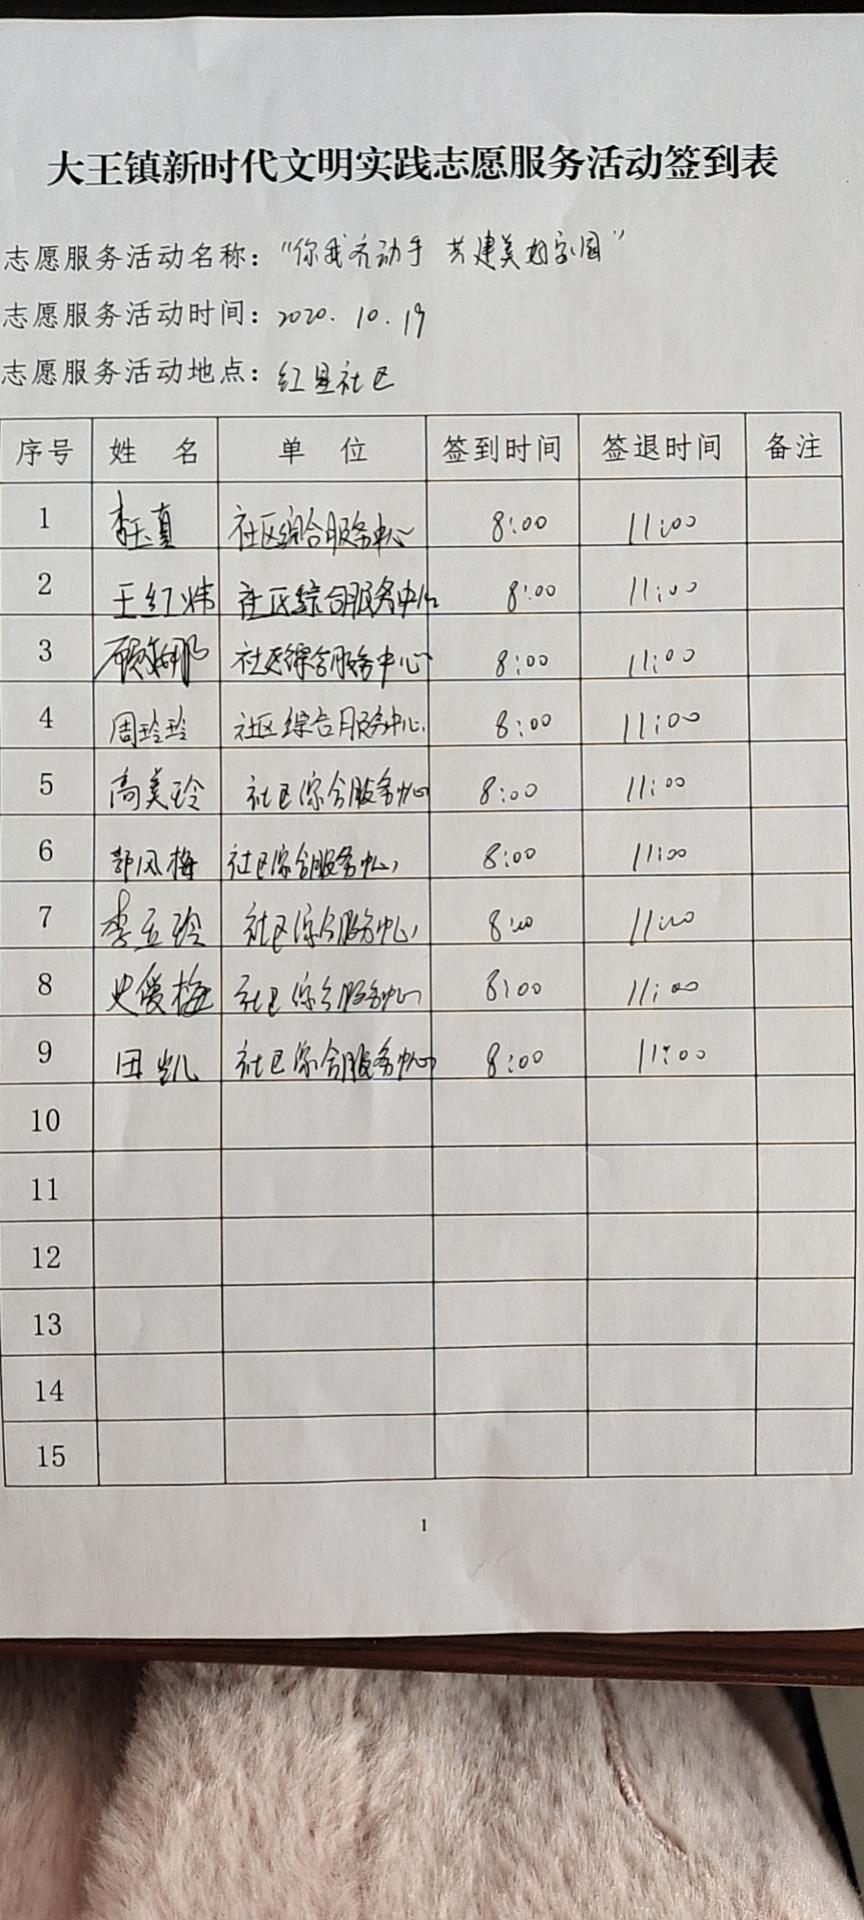 大王镇新时代文明实践志愿服务活动签到表
志愿服务活动名称：“你我齐动手 共建美好家园”
志愿服务活动时间：2020.10.19
志愿服务活动地点：红星社区
序号 姓 名 单 位 签到时间 签退时间 备注
1 李玉真 社区综合服务中心 8:00 11:00
2 王红炜 社区综合服务中心 8:00 11:00
3 社区综合服务中心 8:00 11:00
4 周玲玲 社区综合服务中心 8:00 11:00
5 高美玲 社区综合服务中心 8:00 11:00
6 郭风梅 社区综合服务中心 8:00 11:00
7 李玉玲 社区综合服务中心 8:00 11:00
8 史爱梅 社区综合服务中心 8:00 11:00
9 田凯 社区综合服务中心 8:00 11:00
10
11
12
13
14
15
1